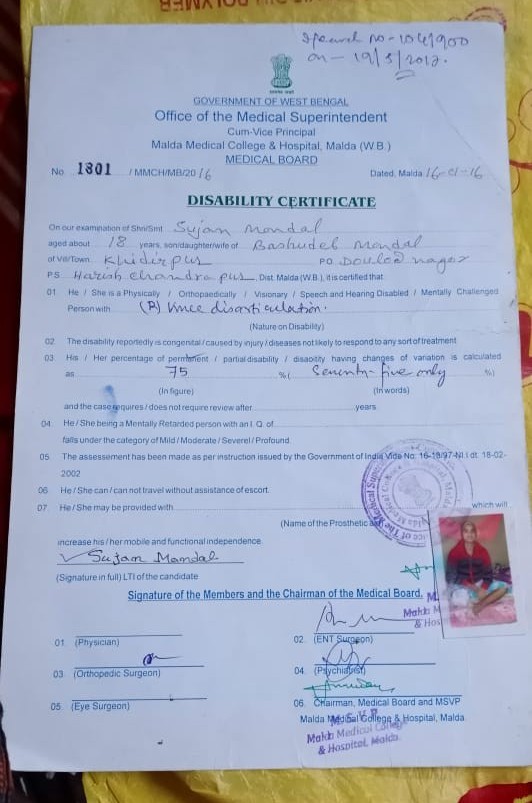 on - 19/5/2017.
GOVERNMENT OF WEST BENGAL
Office of the Medical Superintendent
Cum-Vice Principal
Malda Medical College & Hospital, Malda (W.B.)
MEDICAL BOARD
No. 1801 / MMCH/MB/2016 Dated, Malda 16-01-16
DISABILITY CERTIFICATE
On our examination of Shri/Smt Sujan Mondal
aged about 18 years, son/daughter/wife of Bashudeb Mondal
of Vill/Town Khidirpur PO Doulod nagar
P.S Harish chandra pur, Dist. Malda (W.B.), it is certified that.
01 He / She is a Physically / Orthopaedically / Visionary / Speech and Hearing Disabled / Mentally Challenged
Person with (R) knee disarticulation.
(Nature on Disability)
02 The disability reportedly is congenital / caused by injury / diseases not likely to respond to any sort of treatment
03 His / Her percentage of permanent / partial disability / disability having changes of variation is calculated
as 75 %( Seventy-five only %)
(In figure) (In words)
and the case requires / does not require review after years
04. He / She being a Mentally Retarded person with an I. Q. of
falls under the category of Mild / Moderate / Severel / Profound.
05 The assessement has been made as per instruction issued by the Government of India Vide No: 16-18/97-NI.I dt. 18-02-
2002
06 He / She can / can not travel without assistance of escort.
07. He / She may be provided with which will
(Name of the Prosthetic
increase his / her mobile and functional independence.
Sujan Mandal
(Signature in full) LTI of the candidate
Signature of the Members and the Chairman of the Medical Board.
01. (Physician)
02. (ENT Surgeon)
03. (Orthopedic Surgeon)
04. (Psychiatrist)
05. (Eye Surgeon)
06. Chairman, Medical Board and MSVP
Malda Medical College & Hospital, Malda
M.S.V.P
Malda Medical College
& Hospital, Malda.